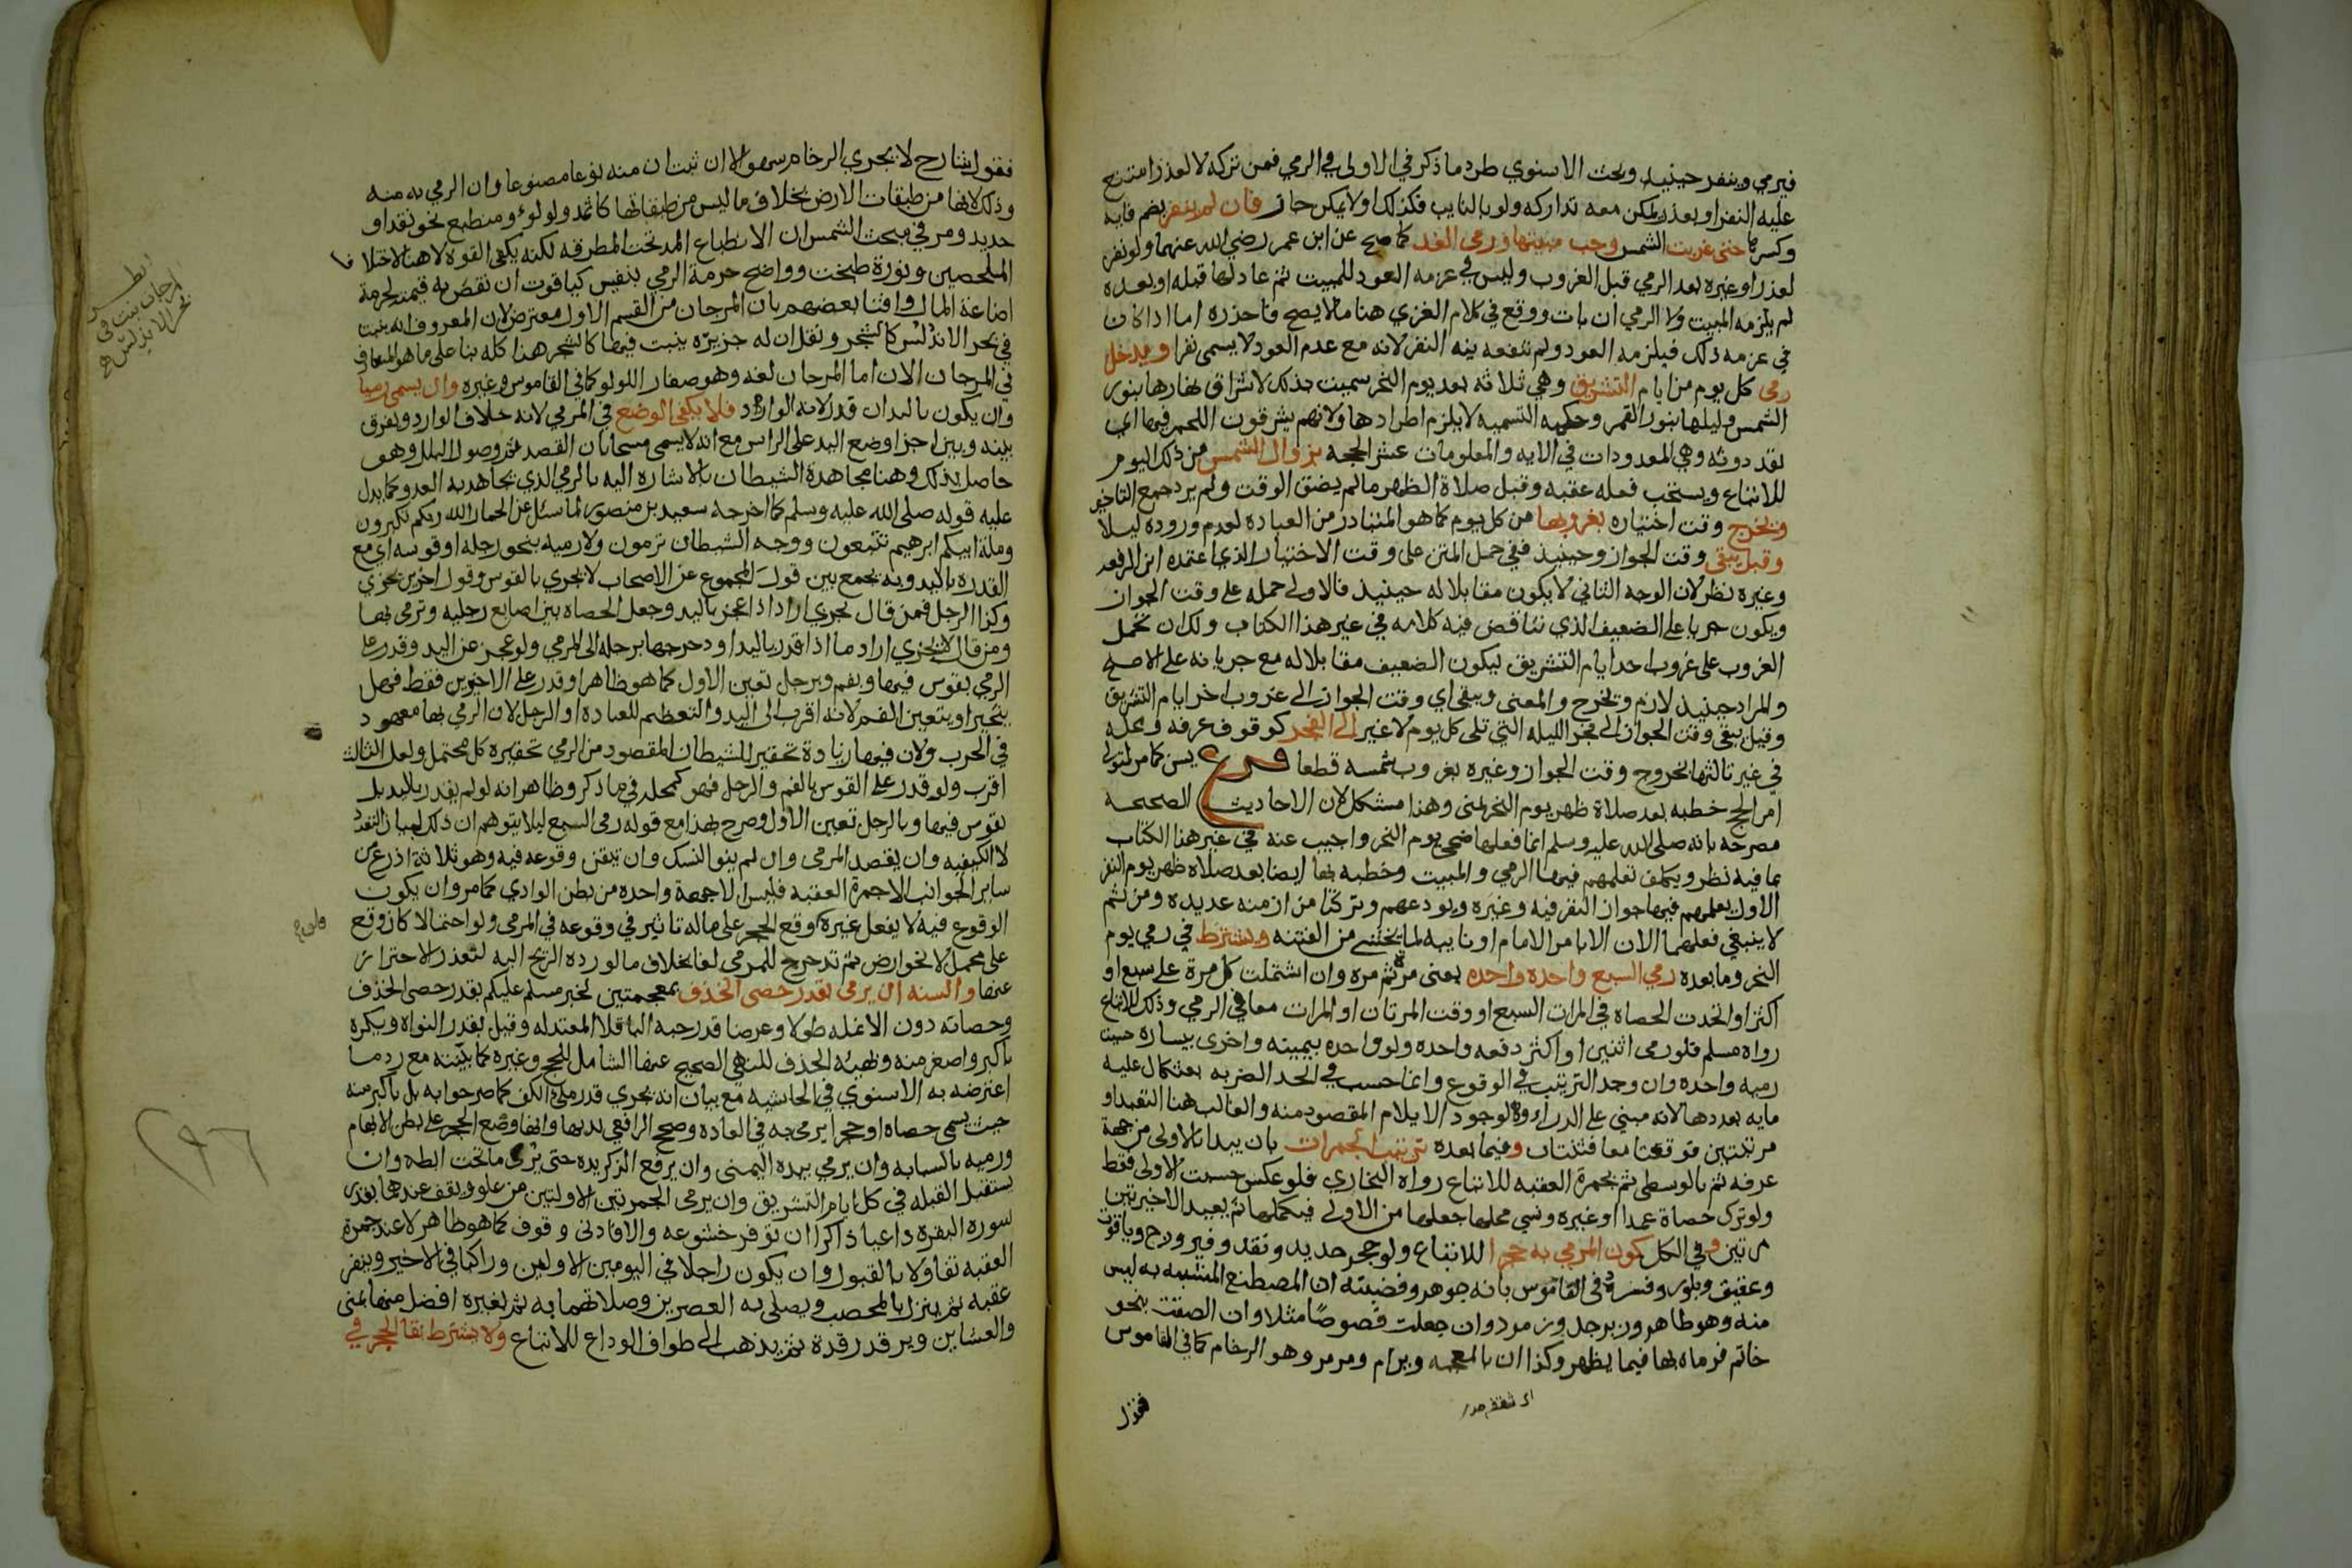 فيرمي وينفر حينيذ وبحث الاسنوي طرد ما ذكر في الاولى في الرمي فمن تركه لا لعذر امتنع
عليه النفر او بعذر يمكن معه تداركه ولو بالنايب فكذلك او لا يمكن جاز فان لم ينفر بضم فايه
وكسرها حتى غربت الشمس وجب مبيتها ورمى الغد كما صح عن ابن عمر رضي الله عنهما ولو نفر
لعذر او غيره بعد الرمي قبل الغروب وليس في عزمه العود للمبيت ثم عاد لها قبله او بعده
لم يلزمه المبيت ولا الرمي ان بات ووقع في كلام الغزي هنا ما لا يصح فاحذره اما اذا كان
في عزمه ذلك فيلزمه العود ولم تنفعه نيه النفر لانه مع عدم العود لا يسمى نفرا ويدخل
رمى كل يوم من ايام التشريق وهي ثلاثه بعد يوم النحر سميت بذلك لاشراق نهارها بنور
الشمس وليلها بنور القمر وحكمه التسميه لا يلزم اطرادها ولانهم يشرقون اللحم فيها اي
يقددونه وهي المعدودات في الايه والمعلومات عشر الحجه بزوال الشمس من ذلك اليوم
للاتباع ويستحب فعله عقبه وقبل صلاة الظهر ما لم يضق الوقت ولم يرد جمع التاخير
ويخرج وقت اختياره بغروبها من كل يوم كما هو المتبادر من العبادة لعدم وروده ليلا
وقيل يبقى وقت الجواز وحينيذ ففي حمل المتن على وقت الاختيار الذي اعتمده ابن الرفعه
وغيره نظر لان الوجه الثاني لا يكون مقابلا له حينيذ فالاولى حمله على وقت الجواز
ويكون جريا على الضعيف الذي تناقض فيه كلامه في غير هذا الكتاب ولك ان تحمل
الغروب على غروب احد ايام التشريق ليكون الضعيف مقابلا له مع جريانه على الاصح
والمراد حينيذ لازم ويخرج والمعنى ويبقى اي وقت الجواز الى غروب اخر ايام التشريق
وقيل يبقى وقت الجواز الى فجر الليله التي تلى كل يوم لا غير الى الفجر كوقوف عرفه ومحله
في غير ثالثها لخروج وقت الجواز وغيره بغروب شمسه قطعا فرع يسن كما مر لمتولى
امر الحج خطبه بعد صلاة ظهر يوم النحر بمنى وهذا مشكل لان الاحاديث الصحيحه
مصرحه بانه صلى الله عليه وسلم انما فعلها ضحى يوم النحر واجيب عنه في غير هذا الكتاب
بما فيه نظر وتكلف تعلمهم فيها الرمي والمبيت وخطبه بها ايضا بعد صلاه ظهر يوم النفر
الاول يعلمهم فيها جواز النفر فيه وغيره ويودعهم وتركتا من ازمنه عديده ومن ثم
لا ينبغي فعلهما الان الا بامر الامام او نايبه لما يخشى من الفتنه ويشترط في رمي يوم
النحر وما بعده رمي السبع واحدة واحده بمعنى مرة ثم مره وان اشتملت كل مرة على سبع او
اكثر او اتحدت الحصاه في المرات السبع او وقت المرتان او المرات معا في الرمي وذلك للاتباع
رواه مسلم فلو رمى اثنين او اكثر دفعه واحده ولو واحده بيمينه واخرى بيساره حسبت
رميه واحده وان وجد الترتيب في الوقوع وانما حسب في الحد الضربه بعثكال عليه
مايه بعددها لانه مبني على الدرا ولوجود الايلام المقصود منه والغالب هنا التعبد او
مرتبتين فوقعتا معا فثنتان وفيما بعده ترتيب الجمرات بان يبدا بالاولى من جهة
عرفه ثم بالوسطى ثم بجمرة العقبه للاتباع رواه البخاري فلو عكس حسبت الاولى فقط
ولو ترك حصاة عمدا او غيره ونسي محلها جعلها من الاولى فيكملها ثم يعيد الاخيرتين
مرتين وفي الكل كون المرمي به حجرا للاتباع ولو حجر حديد ونقد وفيروزج وياقوت
وعقيق وبلور وفسره في القاموس بانه جوهر وقضيته ان المصطنع المتشبه به ليس
منه وهو ظاهر وزبرجد وزمرد وان جعلت فصوصا مثلا وان الصقت بنحو
خاتم فرماه بها فيما يظهر وكذا ان بالمعجمه وبرام ومرمر وهو الرخام كما في القاموس
فقول
فقول شارح لا يجزي الرخام سهو الا ان ثبت ان منه نوعا مصنوعا وان الرمي به منه
وذلك لانها من طبقات الارض بخلاف ما ليس من طبقاتها كاثمد ولولوء ومنطبع نحو نقد او
حديد ومر في مبحث الشمس ان الانطباع المد تحت المطرقه لكنه يكفي القوة لا هنا لاختلاف
الملحظين ونورة طبخت وواضح حرمة الرمي بنفيس كياقوت ان نقص به قيمته لحرمة
اضاعة المال وافتا بعضهم بان المرجان من القسم الاول معترض لان المعروف انه ينبت
في بحر الاندلس كالشجر ونقل ان له جزيره ينبت فيها كالشجر هذا كله بنا على ما هو المتعارف
في المرجان الان اما المرجان لغه وهو صغار اللولو كما في القاموس وغيره وان يسمى رميا
وان يكون باليد ان قدر لانه الوارد فلا يكفي الوضع في المرمي لانه خلاف الوارد ويفرق
بينه وبين اجزا وضع اليد على الراس مع انه لا يسمى مسحا بان القصد ثم وصول البلل وهو
حاصل بذلك وهنا مجاهدة الشيطان بالاشاره اليه بالرمي الذي يجاهد به العدو كما يدل
عليه قوله صلى الله عليه وسلم كما اخرجه سعيد بن منصور لما سئل عن الجمار الله ربكم تكبرون
وملة ابيكم ابراهيم تتبعون ووجه الشيطان ترمون ولا رميه بنحو رجله او قوسه اي مع
القدرة باليد وبه يجمع بين قول المجموع عن الاصحاب لا يجزي بالقوس وقول اخرين يجزي
وكذا الرجل فمن قال يجزي اراد اذا عجز باليد وجعل الحصاه بين اصابع رجليه وترمى بها
ومن قال لا يجزي اراد ما اذا قدر باليد او دحرجها برجله الى المرمي ولو عجز عن اليد وقدر على
الرمي بقوس فيها وبفم وبرجل تعين الاول كما هو ظاهر او قدر على الاخيرين فقط فهل
يتخير او يتعين الفم لانه اقرب الى اليد والتعظيم للعباده او الرجل لان الرمي بها معهود
في الحرب ولان فيها زيادة تحقير للشيطان المقصود من الرمي تحقيره كل محتمل ولعل الثالث
اقرب ولو قدر على القوس بالفم والرجل فهو كمحله في ما ذكر وظاهر انه لو لم يقدر باليد بل
بقوس فيها وبالرجل تعين الاول وصرح بهذا مع قوله رمى السبع ليلا يتوهم ان ذلك لبيان التعدد
لا الكيفيه وان يقصد المرمى وان لم ينو النسك وان تيقن وقوعه فيه وهو ثلاثة اذرع من
ساير الجوانب الا جمرة العقبه فليس لها الا جهة واحده من بطن الوادي كما مر وان يكون
الوقوع فيه لا بفعل غيره كوقع الحجر على ما له تاثير في وقوعه في المرمى ولو احتمالا كان وقع
على محمل لا نحو ارض ثم تدحرج للمرمى لغا بخلاف ما لو رده الريح اليه لتعذر الاحتراز
عنها والسنه ان يرمى بقدر حصى الخذف بمعجمتين لخبر مسلم عليكم بقدر حصى الخذف
وحصاته دون الانمله طولا وعرضا قدر حبه الباقلا المعتدله وقيل بقدر النواه ويكره
باكبر واصغر منه وبهيئه الخذف للنهي الصحيح عنها الشامل للحج وغيره كما بينته مع رد ما
اعترضه به الاسنوي في الحاشيه مع بيان انه يجري قدر ملئ الكف كما صرحوا به بل باكبر منه
حيث يسمى حصاه او حجرا يرمى به في العاده وصحح الرافعي ندبها وانها وضع الحجر على بطن الابهام
ورميه بالسبابه وان يرمي بيده اليمنى وان يرفع الذكر يده حتى يرى ما تحت ابطه وان
يستقبل القبله في كل ايام التشريق وان يرمى الجمرتين الاولتين من علو ويقف عندهما بقدر
سورة البقره داعيا ذاكرا ان توفر خشوعه والا فادنى وقوف كما هو ظاهر لا عند جمرة
العقبه تفاولا بالقبول وان يكون راجلا في اليومين الاولين وراكبا في الاخير وينفر
عقبه ثم ينزل بالمحصب ويصلي به العصرين وصلاتهما به ثم بغيره افضل منها بمنى
والعشاين ويرقد رقدة ثم يذهب الى طواف الوداع للاتباع ولا يشترط بقا الحجر في